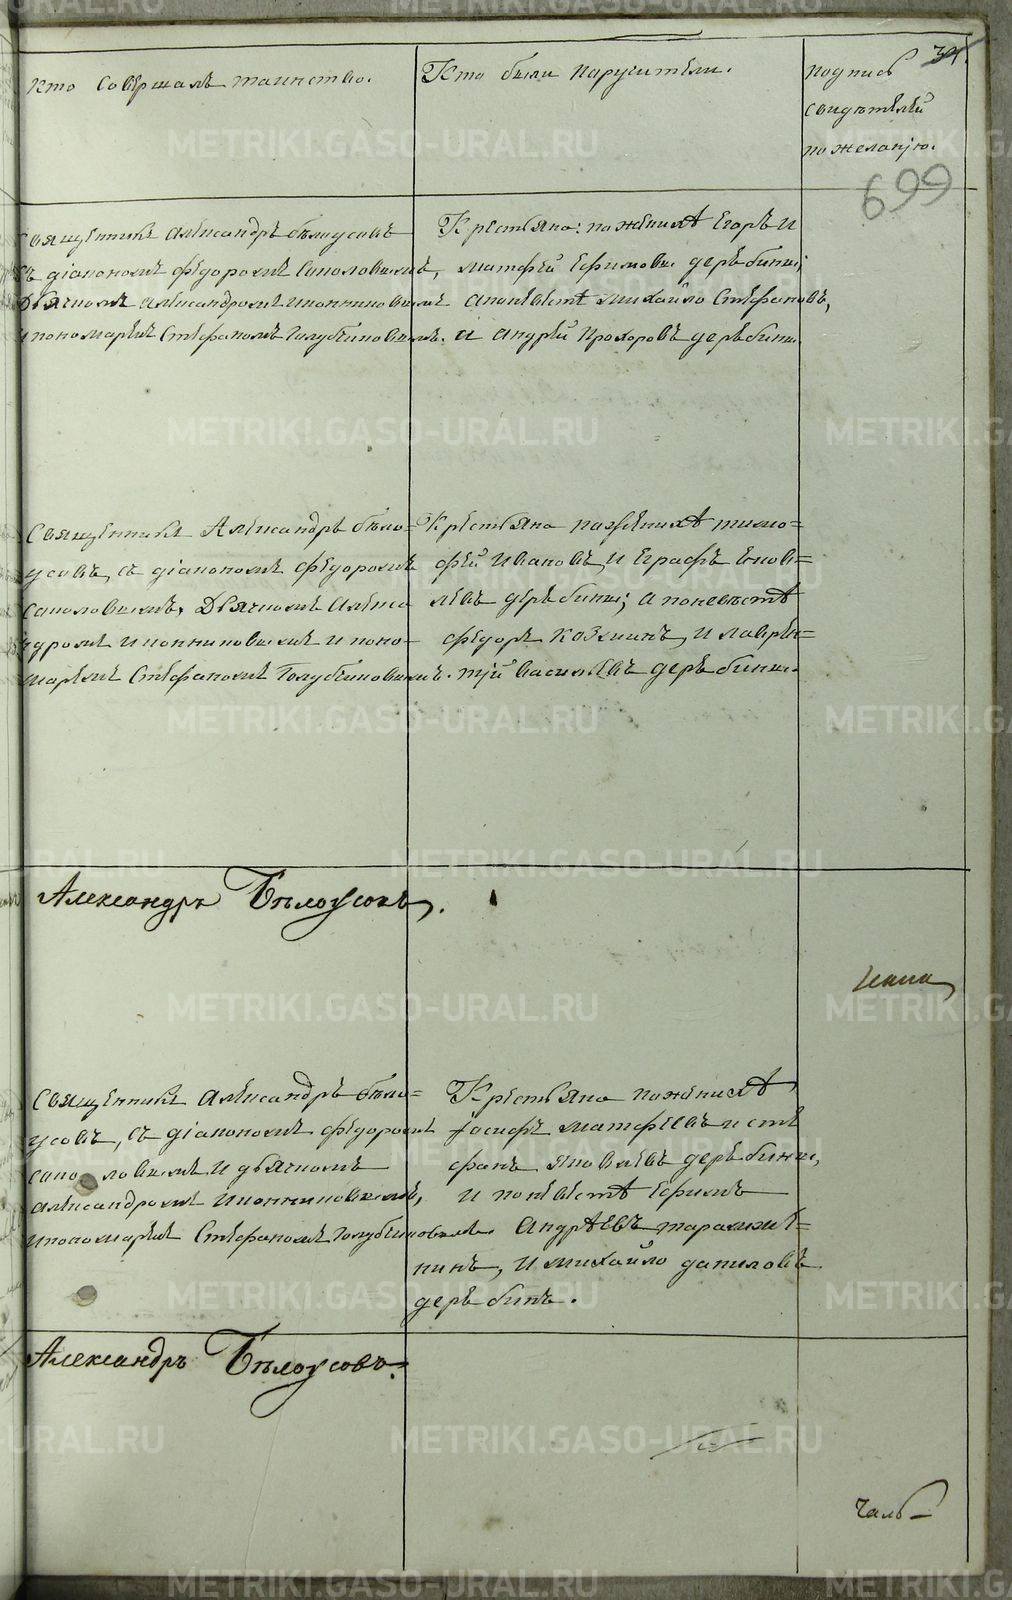 34
Кто совершалъ таинство.
Кто были поручители.
подпись
свидѣтелей
по желанію.
699
Священникъ Александръ бѣлоусовъ
съ діакономъ Федоромъ Соколовскимъ,
Дьячкомъ Александромъ Иконниковскимъ
и пономаремъ Стефаномъ Голубчиковскимъ.
Крестьяна: по женихѣ Егоръ и
матфей Ефимовы деребины;
а по невѣстѣ михайло Стефановъ,
и андрей Прохоровъ деребины.
Священникъ Александръ бѣло=
усовъ, съ діакономъ федоромъ
Соколовскимъ, Дьячкомъ Алекса
ндромъ Иконниковскимъ и поно=
маремъ Стефаномъ Голубчиковскимъ.
Крестьяна по женихѣ тимо=
фей Ивановъ, и Еграфъ
левъ деребины; а по невѣстѣ
федоръ козминъ, и лаврен=
тій васильевъ деребины.
Александръ Бѣлоусовъ.
Священникъ Александръ бѣло=
усовъ, съ діакономъ федоромъ
соко ловскимъ и дьячкомъ
александромъ Иконниковскимъ,
и пономаремъ Стефаномъ голубчиковскимъ.
Крестьяна по женихѣ
Іосифъ матфеевъ и сте
фанъ яковлевъ деребины,
и по невѣстѣ Ефимъ
Андрѣевъ
нинъ, и михайло даниловъ
деребинъ.
Александръ Бѣлоусовъ.
METRIKI.GASO-URAL.RU